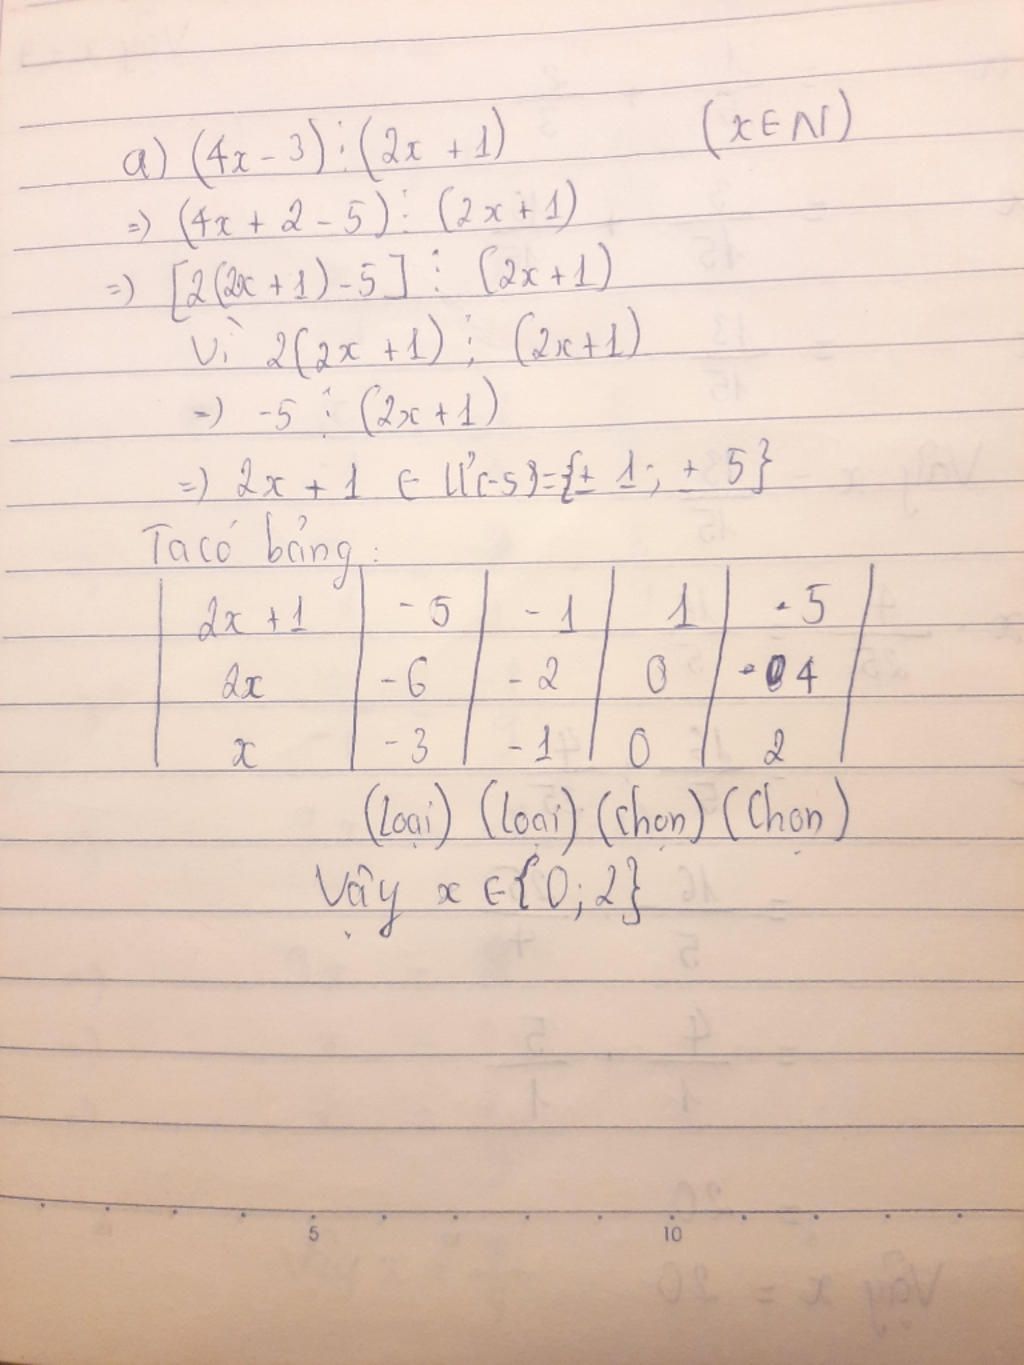 a) (4x - 3) ⋮ (2x + 1) (x ∈ N)
=) (4x + 2 - 5) ⋮ (2x + 1)
=) [2(2x + 1) - 5] ⋮ (2x + 1)
Vì 2(2x + 1) ⋮ (2x + 1)
=) -5 ⋮ (2x + 1)
=) 2x + 1 ∈ Ư(-5) = {± 1; ± 5}
Ta có bảng:
2x + 1 -5 -1 1 5
2x -6 -2 0 4
x -3 -1 0 2
(loại) (loại) (chọn) (Chọn)
Vậy x ∈ {0; 2}
5 10